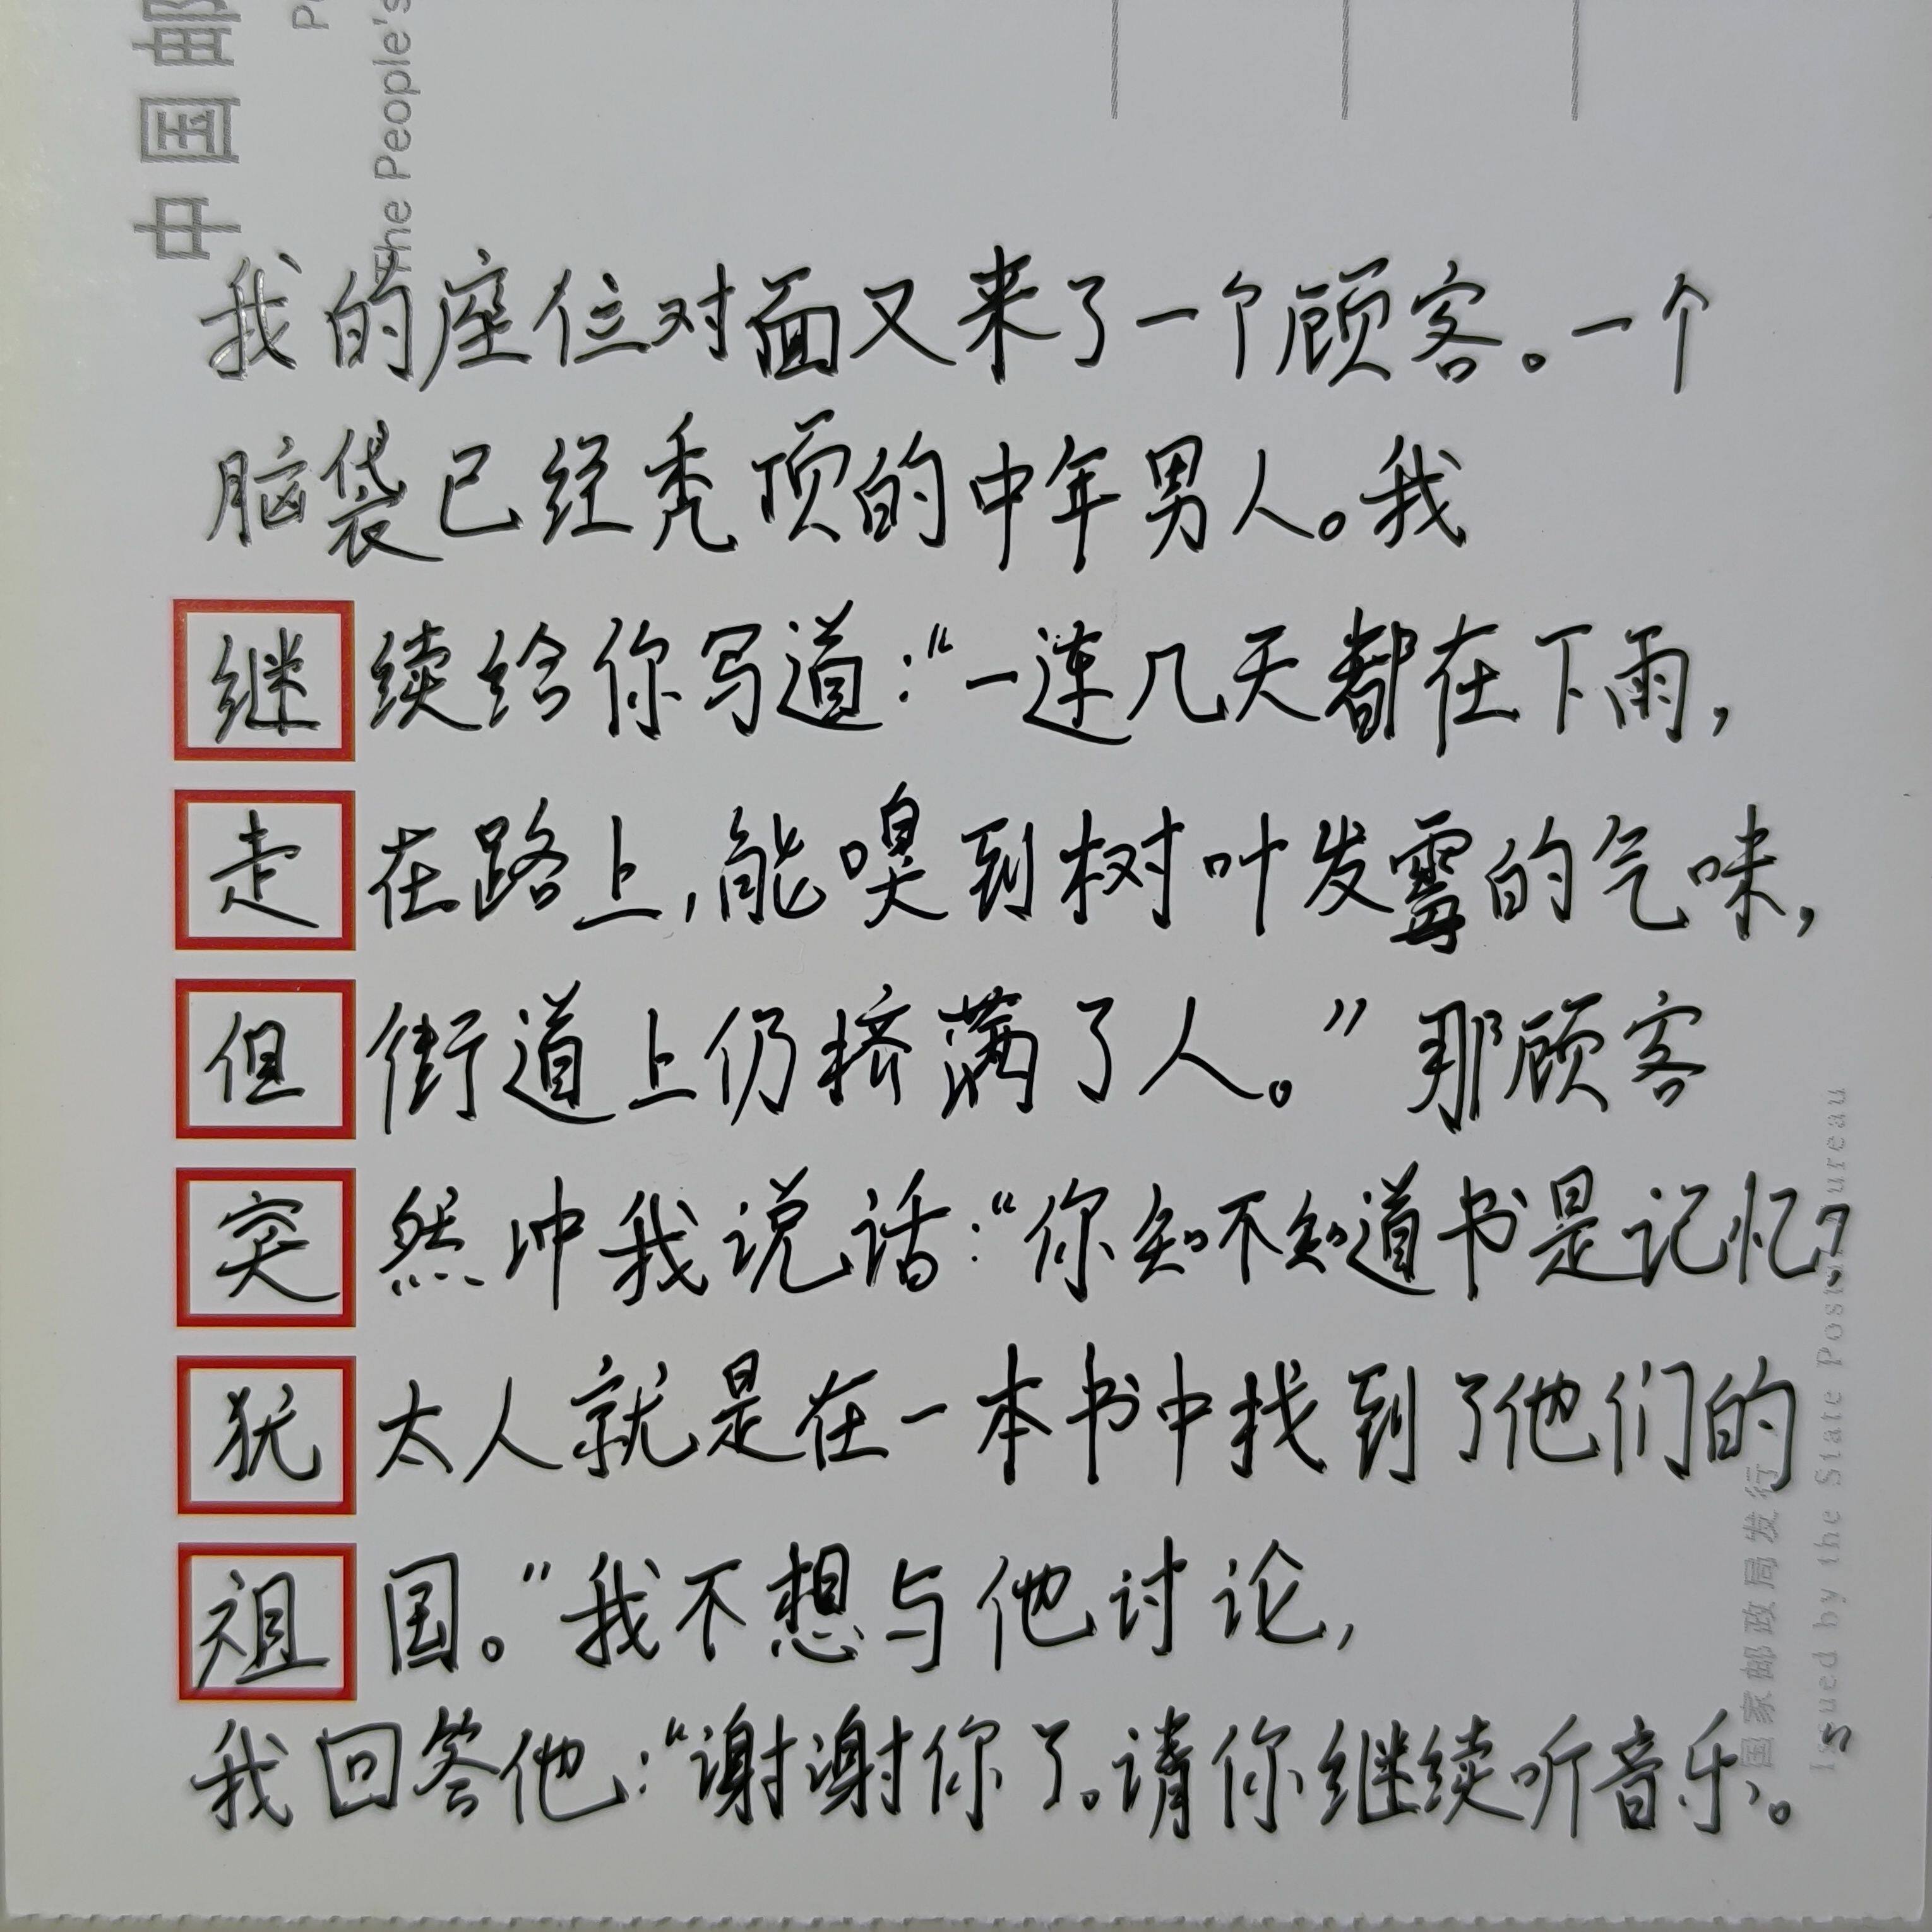 中国邮
P
The People's
我的座位对面又来了一个顾客。一个
脑袋已经秃顶的中年男人。我
继续给你写道：“一连几天都在下雨，
走在路上，能嗅到树叶发霉的气味，
但街道上仍挤满了人。”那顾客
突然冲我说话：“你知不知道书是记忆？
犹太人就是在一本书中找到了他们的
祖国。”我不想与他讨论，
我回答他：“谢谢你了。请你继续听音乐。”
国家邮政局发行
Issued by the State Postal Bureau